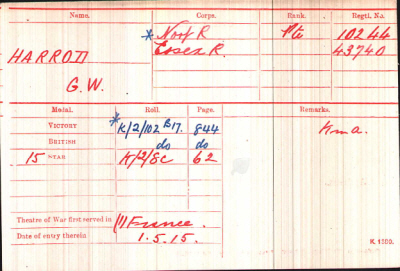 Name. Corps. Rank. Regtl. No.
HARROD * Norf R. Pte 10244
G.W. Essex R. 43740
Medal. Roll. Page. Remarks.
VICTORY * K/2/102 B17. 844 K in a.
BRITISH do do
15 STAR K/2/8C 62
Theatre of War first served in (1) France.
Date of entry therein 1.5.15.
K. 1380.